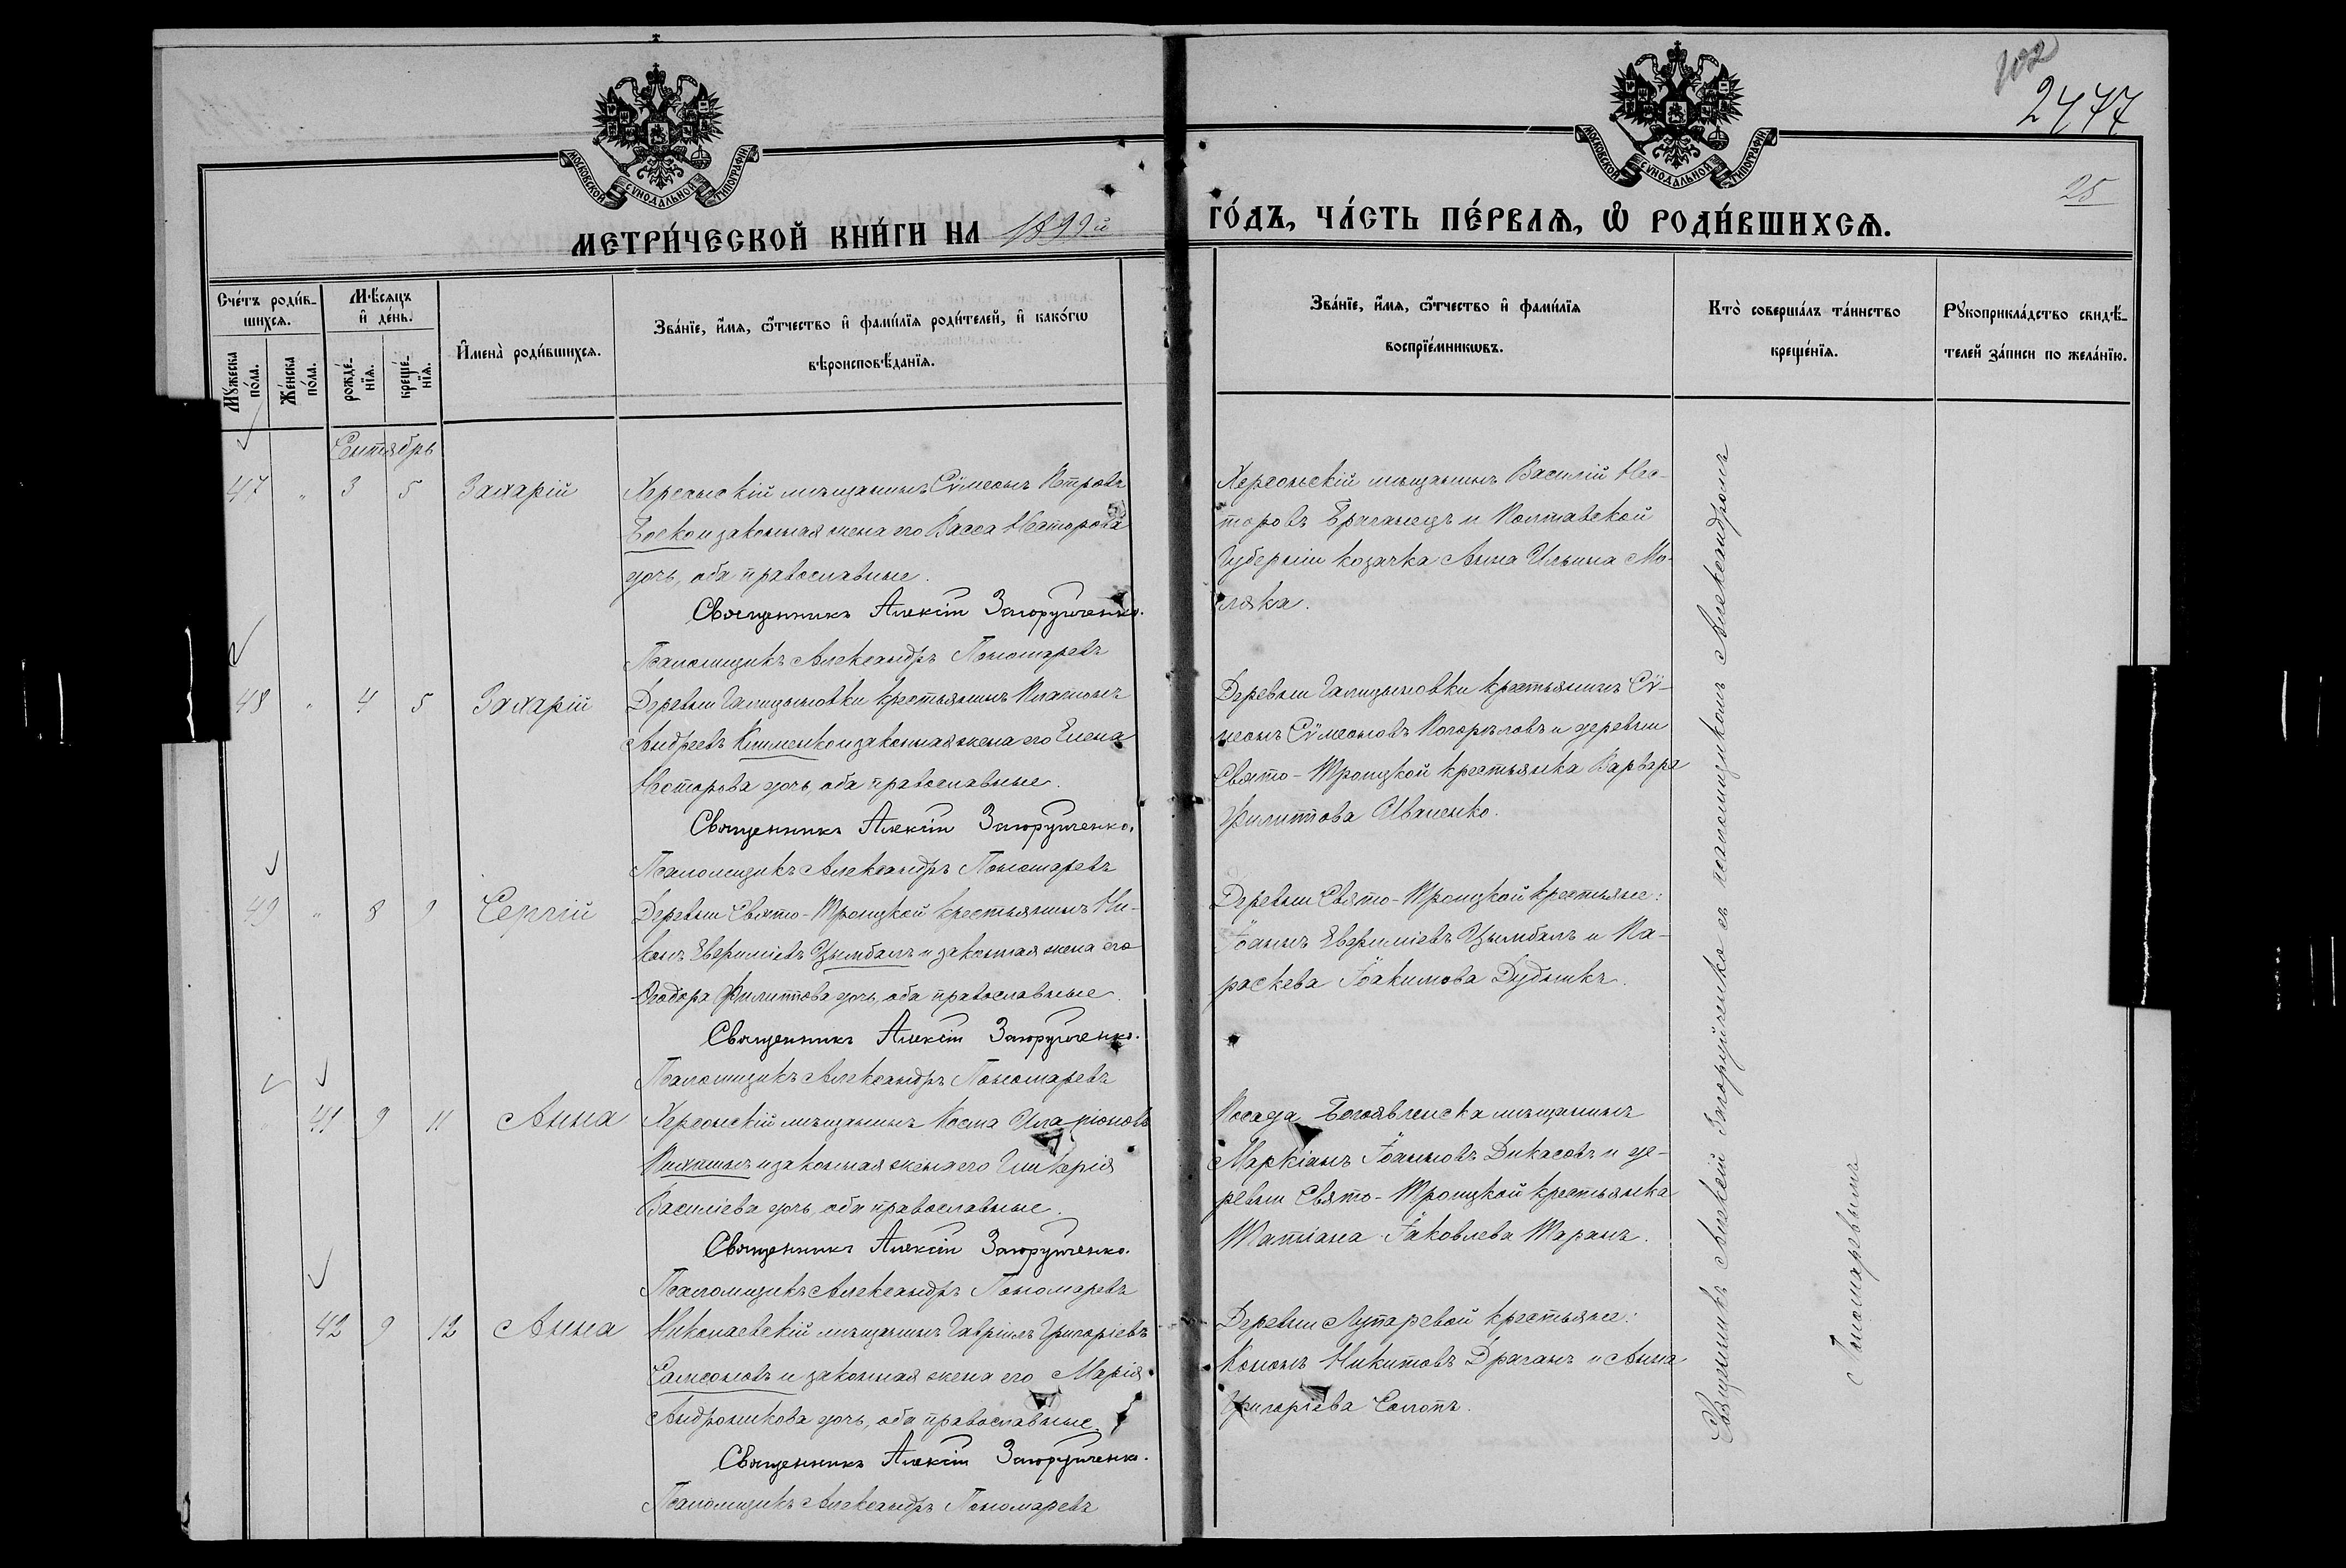 102
2477
25
МОСКОВСКОЙ СѴНОДАЛЬНОЙ ТИПОГРАФІИ
МОСКОВСКОЙ СѴНОДАЛЬНОЙ ТИПОГРАФІИ
МЕТРИ́ЧЕСКОЙ КНИ́ГИ НА 1899й
ГО́ДЪ, ЧА́СТЬ ПЕ́РВАѦ, Ѡ҆ РОДИ́ВШИХСѦ.
Сче́тъ роди́в-
шихсѧ.
Мꙋ́жеска
по́ла.
Же́нска
по́ла.
Мѣ́сѧцъ
и҆ де́нь.
рожде́-
нїѧ.
креще́-
нїѧ.
И҆мена̀ роди́вшихсѧ.
Зва́нїе, и҆́мѧ, ѻ҆́тчество и҆ фами́лїѧ роди́телей, и҆ како́гѡ
вѣроисповѣ́данїѧ.
Зва́нїе, и҆́мѧ, ѻ҆́тчество и҆ фами́лїѧ
воспрїе́мникѡвъ.
Кто̀ соверша́лъ та́инство
креще́нїѧ.
Рꙋкоприкла́дство свидѣ́-
телей за́писи по жела́нїю.
Сентябрь
47 " 3 5 Захарій
Херсонскій мѣщанинъ Сѵмеонъ Петровъ
Боско и законная жена его Васса Несторова
дочь, оба православные.
Священникъ Алексій Загоруйченко.
Псаломщикъ Александръ Пономаревъ
Херсонскій мѣщанинъ Василій Нес-
торовъ Браганецъ и Полтавской
Губерніи козачка Анна Ильина Мо-
ляка.
48 " 4 5 Захарій
Деревни Галицыновки крестьянинъ Платонъ
Андреевъ Клименко и законная жена его Елена
Несторова дочь, оба православные.
Священникъ Алексій Загоруйченко.
Псаломщикъ Александръ Пономаревъ
Деревни Галицыновки крестьянинъ Сѵ-
меонъ Сѵмеоновъ Погорѣловъ и деревни
Свято-Троицкой крестьянка Варвара
Филиппова Иваненко.
49 " 8 9 Сергій
Деревни Свято-Троицкой крестьянинъ Ни-
конъ Евфиміевъ Цымбалъ и законная жена его
Ѳеодора Филиппова дочь, оба православные.
Священникъ Алексій Загоруйченко.
Псаломщикъ Александръ Пономаревъ
Деревни Свято-Троицкой крестьяне:
Іоаннъ Евфиміевъ Цымбалъ и Па-
раскева Іоакимова Дудникъ.
41 9 11 Анна
Херсонскій мѣщанинъ Косма Иларіоновъ
и законная жена его Гликерія
Василіева дочь, оба православные.
Священникъ Алексій Загоруйченко.
Псаломщикъ Александръ Пономаревъ
Посада Богоявленска мѣщанинъ
Маркіанъ Іоанновъ Дикасовъ и де-
ревни Свято-Троицкой крестьянка
Татіана Іаковлева Таранъ.
42 9 12 Анна
Николаевскій мѣщанинъ Гавріилъ Григоріевъ
Самсоновъ и законная жена его Марія
Андроникова дочь, оба православные.
Священникъ Алексій Загоруйченко.
Псаломщикъ Александръ Пономаревъ
Деревни Лупаревой крестьяне:
Кононъ Никитовъ Драганъ и Анна
Григоріева Солопъ.
Священникъ Алексій Загоруйченко съ псаломщикомъ Александромъ
Пономаревымъ